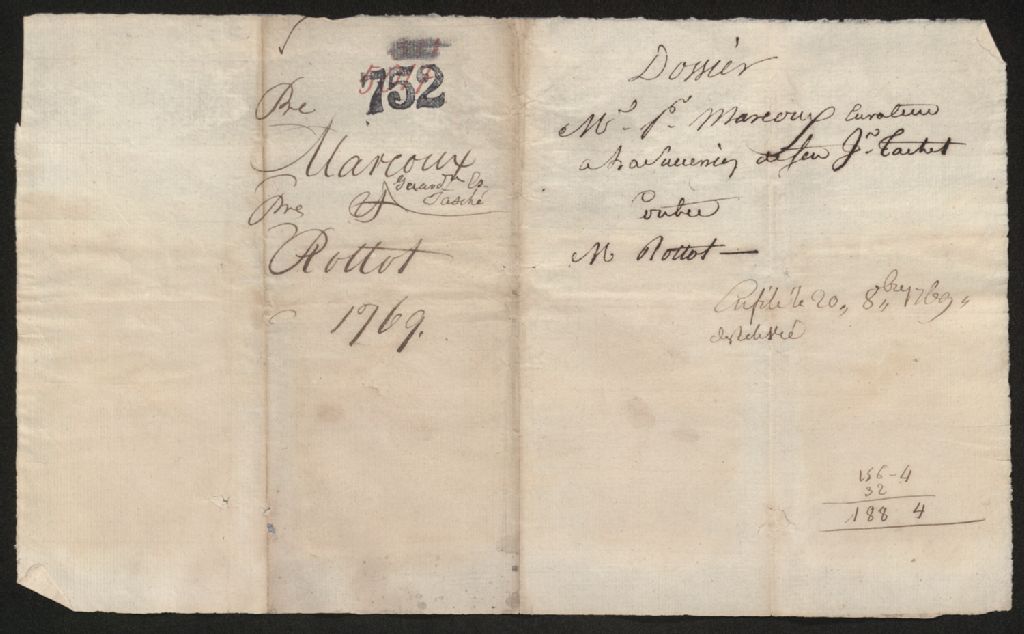 752
Pre
Marcoux
Pre
Rottot
1769.
Dossiér
Mr. Pr. Marcoux Curateur
a la Succession de feu Jn. Tachet
Contre
M Rottot —
le 20,, 8,,bre 1769,,
156-4
32
188 4